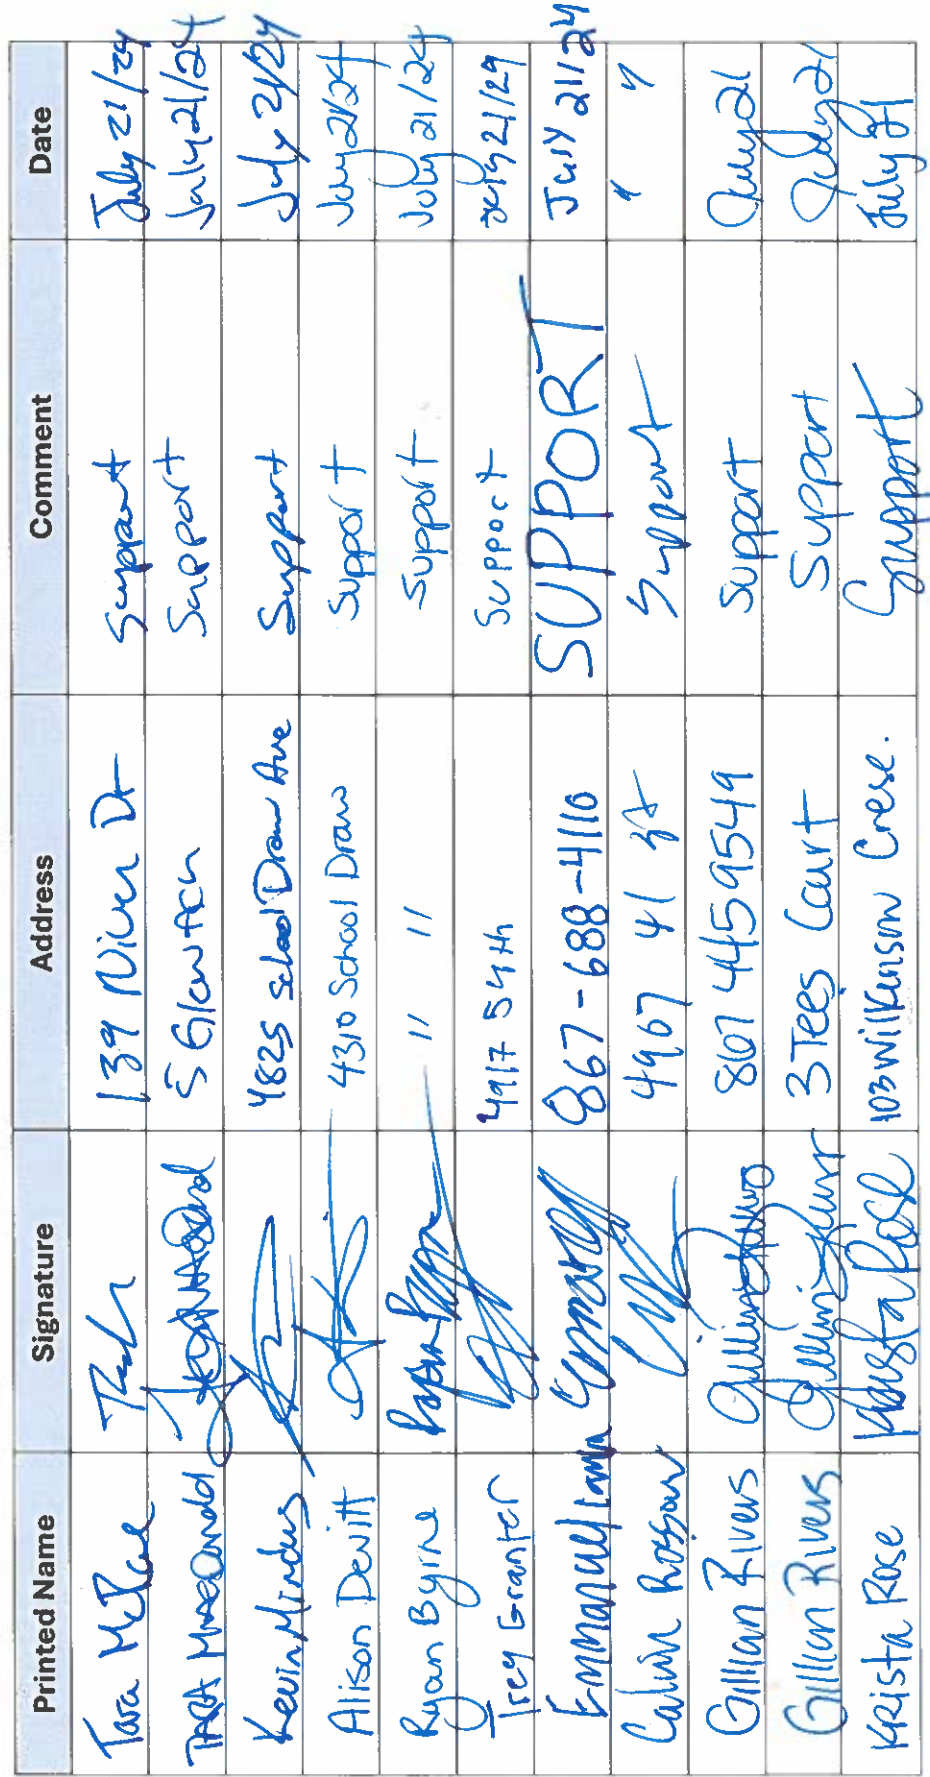 Printed Name Signature Address Comment Date
Tara 139 Niven Dr Support July 21/24
TARA MacDonald 5 Support July 21/24
Kevin 4825 School Draw Ave Support July 21/24
Alison Devitt 4310 School Draw Support July 21/24
Ryan Byrne Ryan Byrne " " Support July 21/24
Trey Granter 4917 54th Support July 21/24
Emmanuel 867-688-4110 SUPPORT July 21/24
Calvin 4907 41 st Support " "
Gillian Rivers 867 445 9549 Support July 21
Gillian Rivers 3 Tees Court Support July 21
KRista Rose Krista Rose 103 Wilkinson Cresc. Support July 21